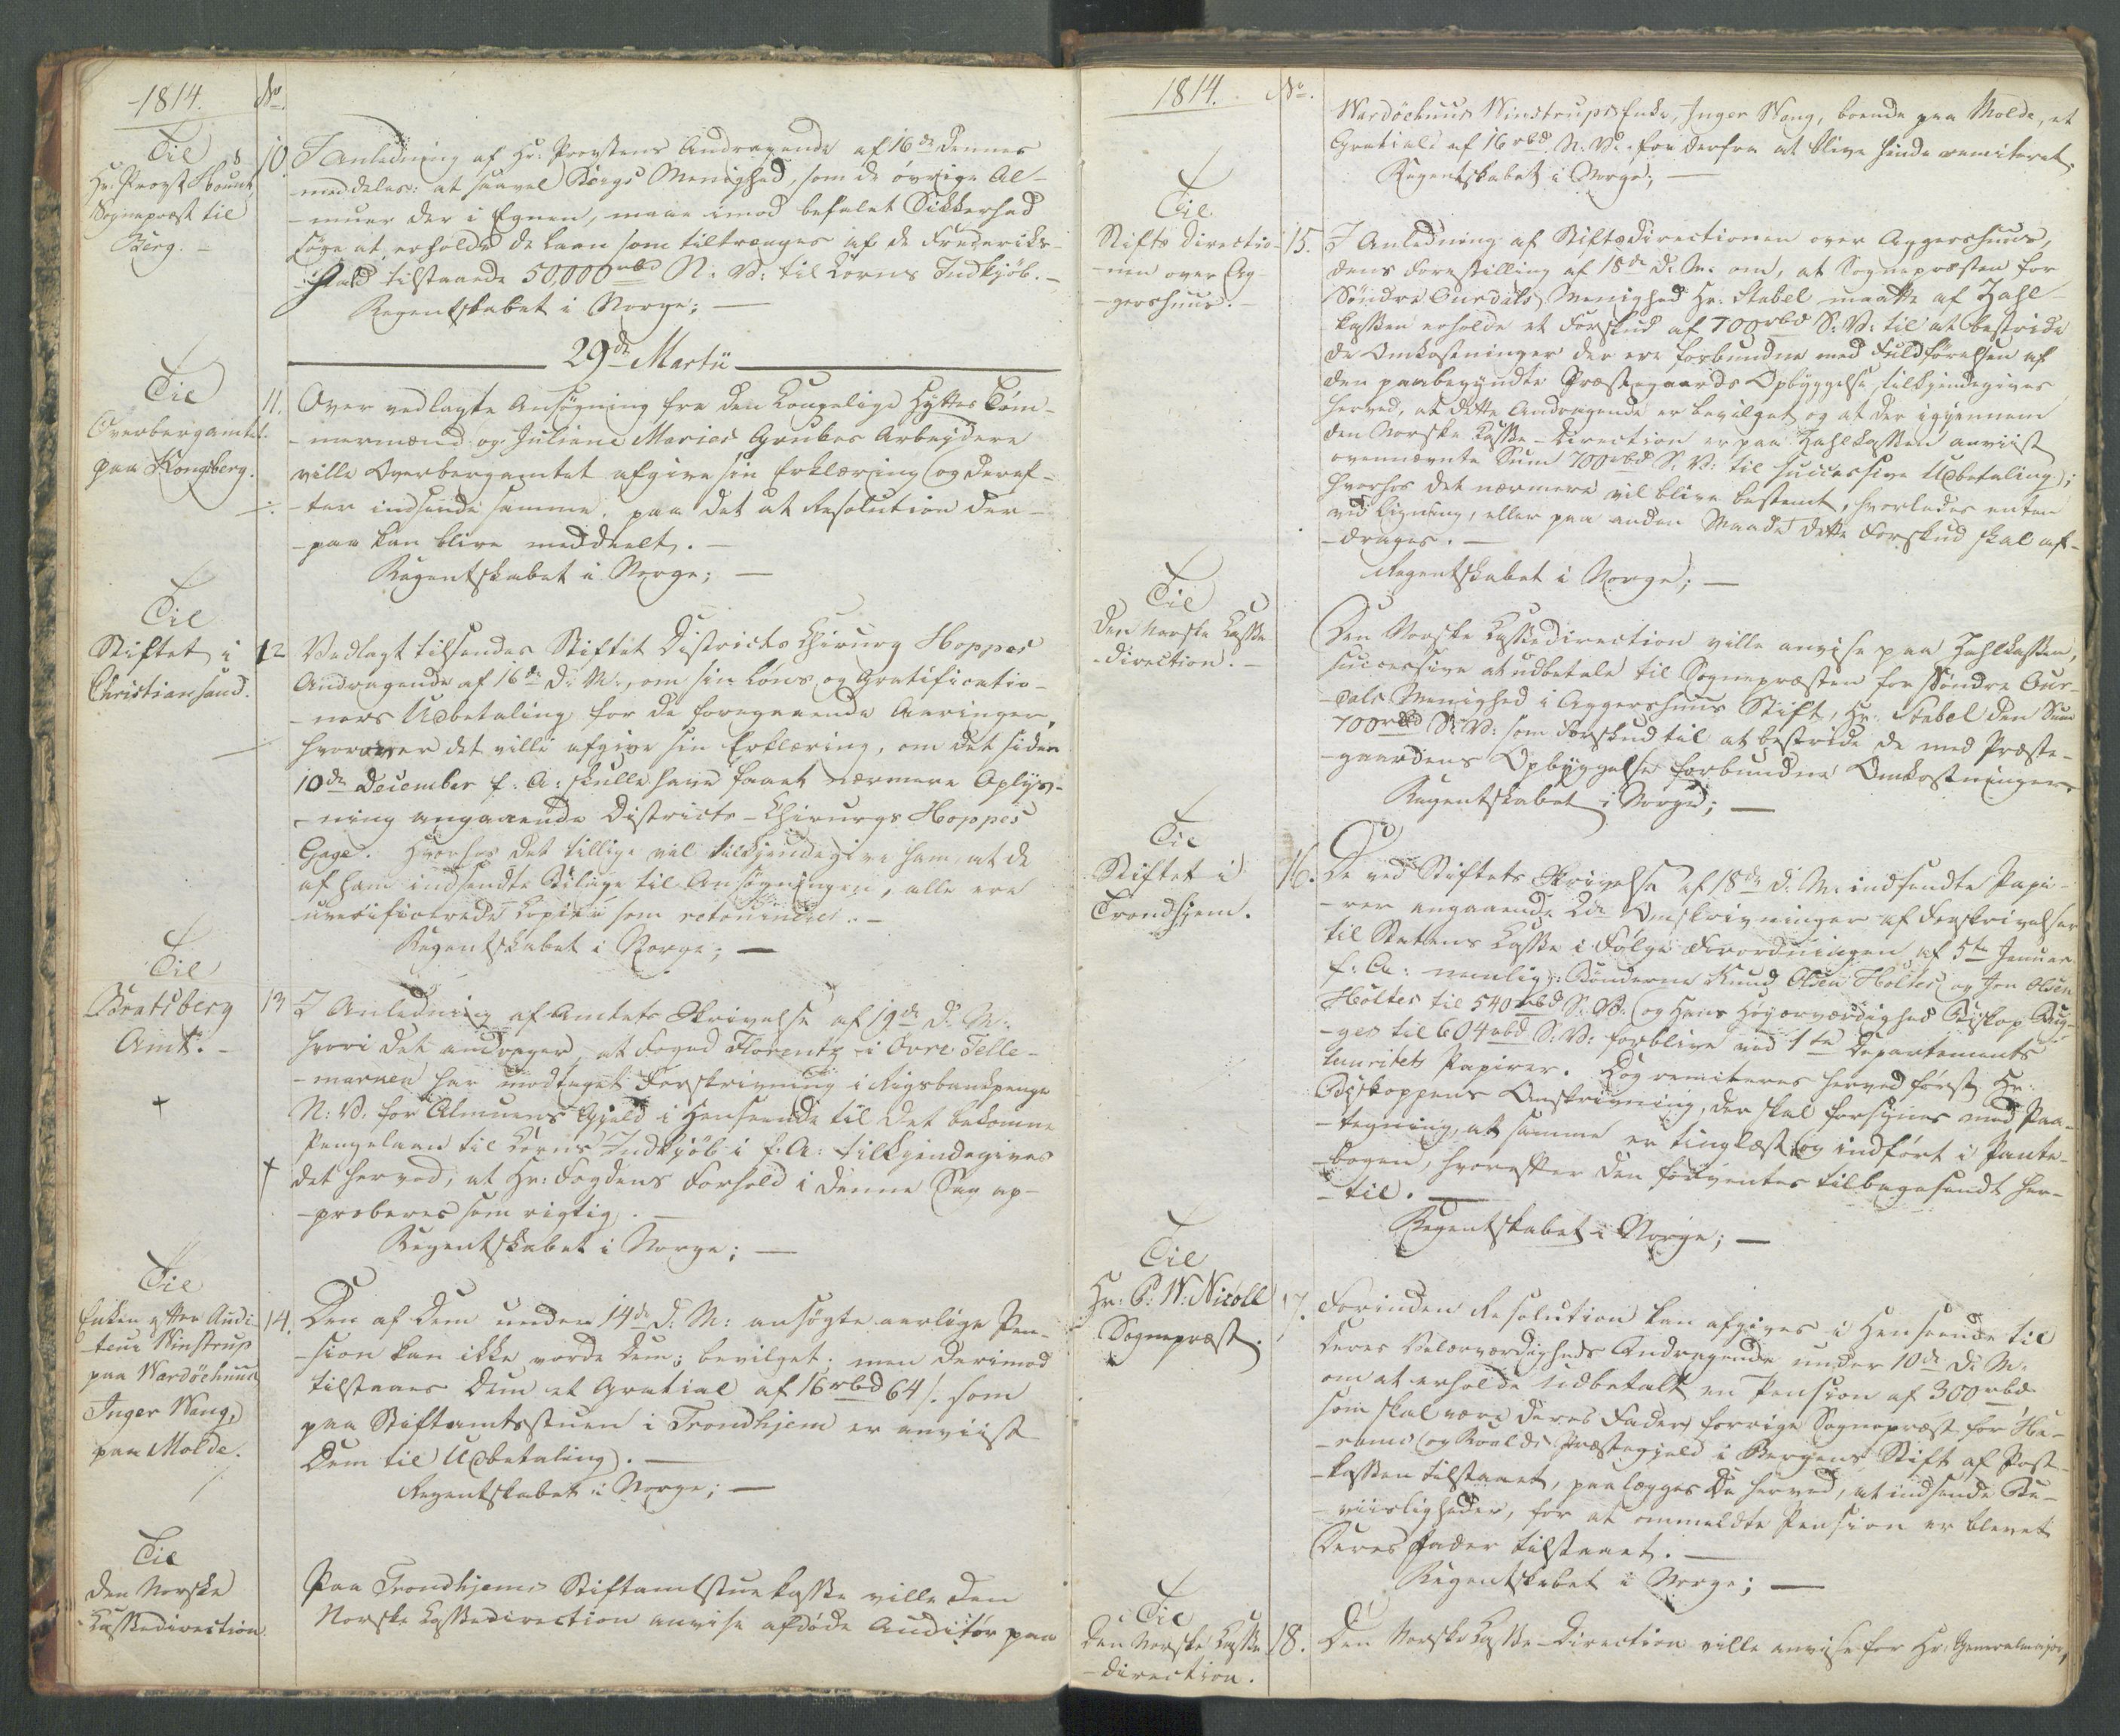 1814.
No.
Til
Hr. Provst
Sognepræst til
Berg.
10. I Anledning af Hr: Provstens Andragende af 16de dennes
meddeles: at saavel Bergs Menighed, som de øvrige Al-
-muer der i Egnen, maae imod befalet Sikkerhed
søge at erholde de Laan som tiltrænges af de Frederiks-
-hald tilstaaede 50,000 rbd N: V: til Korns Indkjøb.-
Regentskabet i Norge; —
29de Martii
Til
Overbergamtet
paa Kongsberg.
11. Over vedlagte Ansøgning fra den Kongelige Hyttes Tøm-
-mermænd og Juliane Maries Grubes Arbeydere
ville Overbergamtet afgive sin Erklæring og deref-
-ter indsende samme, paa det at Resolution der-
-paa kan blive meddeelt. -
Regentskabet i Norge; —
Til
Stiftet i
Christiansand.
12 Vedlagt tilsendes Stiftet Districts Chirurg Hoppes
Andragende af 16de d: M:, om sin Løns og Gratificatio-
-ners Udbetaling for de foregaaende Aaringer,
hvorover det ville afgive sin Erklæring, om det siden
10de December f: A: skulle have faaet nærmere Oplys-
-ning angaaende Districts-Chirurgs Hoppes
Gage. Hvorhos det tillige vil tilkjendegive ham, at de
af ham indsendte Bilage til Ansøgningen, alle ere
uverificerede Copier som .-
Regentskabet i Norge; —
Til
Bratsberg
Amt. -
13 I Anledning af Amtets Skrivelse af 19de d: M:
hvori det andrager, at Foged Florentz i Øvre Telle-
-marken har modtaget Forskrivning i Rigsbankpenge
N: V: for Almuens Gjeld i Henseende til det bekomne
Pengelaan til Korns Indkjøb i f: A: tilkjendegives
det herved, at Hr: Fogdens Forhold i denne Sag ap-
-proberes som rigtig. —
Regentskabet i Norge; —
Til
Enken efter Audi-
-teur Winstrup
paa Wardöehuus
Inger Wang,
paa Molde.
14. Den af Dem under 14de d: M: ansøgte aarlige Pen-
-sion kan ikke vorde Dem bevilget; men derimod
tilstaaes Dem et Gratial af 16 rbd 64 /. som
paa Stiftamtstuen i Trondhjem er anviist
Dem til Udbetaling. —
Regentskabet i Norge; —
Til
den Norske
Cassedirection
Paa Trondhjems Stiftamtstuekasse ville den
Norske Cassedirection anvise afdøde Auditør paa
1814.
No.
Wardöehuus Winstrups Enke, Inger Wang, boende paa Molde, et
Gratiale af 16 rbd. N. V: for derfra at blive hende remiteret.
Regentskabet i Norge; —
Til
Stifts directio-
-nen over Ag-
-gershuus. -
15. I Anledning af Stiftsdirectionen over Aggershuus,
dens Forestilling af 18de d: M: om, at Sognepræsten for
Søndre Ourdals Menighed Hr. Stabel maatte af Zahl-
kassen erholde et Forskud af 700 rbd S: V: til at bestride
de Omkostninger der ere forbundne med Fuldførelsen af
den paabegyndte Præstegaards Opbyggelse, tilkjendegives
herved, at dette Andragende er bevilget og at der igjennem
den Norske Casse-Direction er paa Zahlkassen anviist
ovennævnte Sum 700 rbd S: V: til successive Udbetaling;
hvorhos det nærmere vil blive bestemt, hvorledes enten
ved Ligning, eller paa anden Maade dette Forskud skal af-
-drages. —
Regentskabet i Norge; —
Til
den Norske Casse
-direction. -
Den Norske Cassedirection ville anvise paa Zahlkassen,
successive at udbetale til Sognepræsten for Søndre Our-
-dals Menighed i Aggershuus Stift, Hr. Stabel den Sum
700 rbd S: V: som Forskud til at bestride de med Præste-
-gaardens Opbyggelse forbundne Omkostninger.
Regentskabet i Norge; —
Til
Stiftet i
Trondhjem.
16. De ved Stiftets Skrivelse af 18de d: M: indsendte Papi-
-rer angaaende 2de Omskrivninger af Forskrivelser
til Statens Casse i Følge Forordningen af 5te Januar
f: A: nemlig: Bønderne Knud Olsen Holtes og Jon Olsen
Holtes til 540 rbd S: V: og Hans Høyærværdighed Biskop Bug-
-ges til 604 rbd S: V: forblive ved 1te Departements
 Papirer. Dog remiteres herved først Hr:
Biskoppens Omskrivning, der skal forsynes med Paa-
-tegning, at samme er tinglæst og indført i Pante-
-bogen, hvorefter den forventes tilbagesendt her-
-til. —
Regentskabet i Norge; —
Til
Hr. P. W. Nicoll
Sognepræst.
17. Forinden Resolution kan afgives i Henseende til
Deres Velærværdigheds Andragende under 10de d: M:
om at erholde udbetalt en Pension af 300 rbd
som skal være Deres Fader, forrige Sognepræst for He-
-rams og Roalds Præstegjeld i Bergens Stift af Post-
-kassen tilstaaet, paalægges De herved, at indsende Be-
-viisligheder, for at ommeldte Pension er blevet
Deres Fader tilstaaet. —
Regentskabet i Norge; —
Til
den Norske Casse
-direction.
18. Den Norske Casse-Direction ville anvise for Hr. Generalmajor,